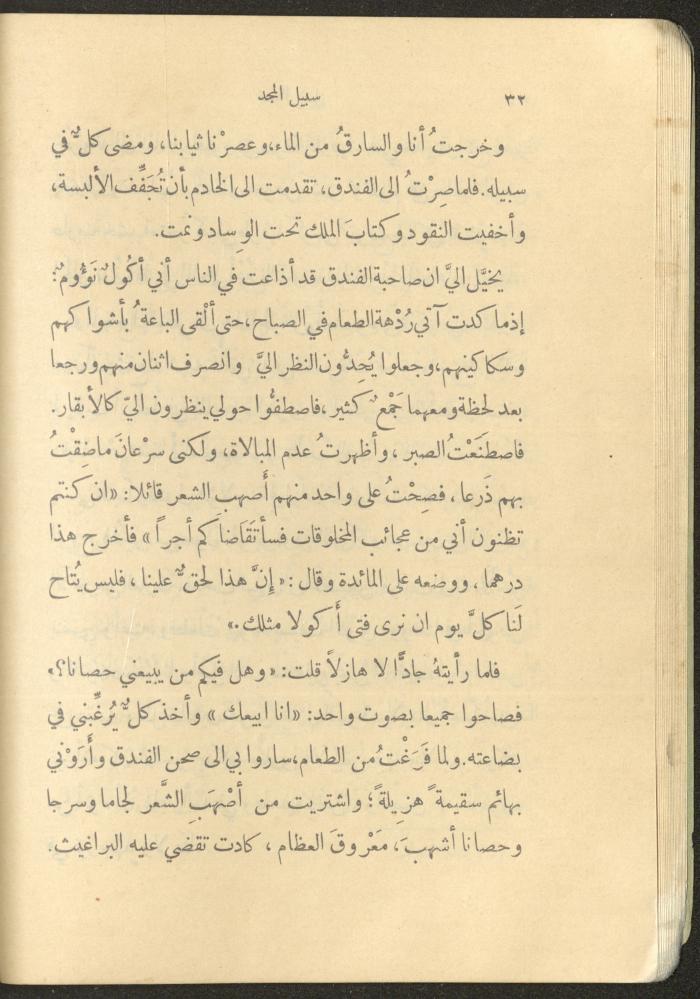 ٣٢
سبيل المجد
وخرجتُ أنا والسارقُ من الماء، وعصرْنا ثيابنا، ومضى كلٌّ في
سبيله. فلما صِرْتُ الى الفندق، تقدمت الى الخادم بأن تُجَفِّف الألبسة،
وأخفيت النقود وكتابَ الملك تحت الوِساد ونمت.
يخيَّل اليَّ ان صاحبة الفندق قد أذاعت في الناس أني أكُولٌ نَؤُومٌ:
إذ ما كدت آتي رُدْهة الطعام في الصباح، حتى ألْقى الباعةُ بأشواكهم
وسكاكينهم، وجعلوا يُحِدُّون النظر اليَّ وانصرف اثنان منهم ورجعا
بعد لحظة ومعهما جَمْعٌ كثير، فاصطفُّوا حولي ينظرون اليّ كالأبقار.
فاصطَنَعْتُ الصبر، وأظهرتُ عدم المبالاة، ولكنى سرْعانَ ما ضِقْتُ
بهم ذَرعا، فصِحْتُ على واحد منهم أصهب الشعر قائلا: «ان كنتم
تظنون أني من عجائب المخلوقات فسأتَقَاضاكم أجراً» فأخرج هذا
درهما، ووضعه على المائدة وقال: «إنَّ هذا لحقٌّ علينا، فليس يُتاح
لَنا كلَّ يوم ان نرى فتى أَكولا مثلك.»
فلما رأيتهُ جادًّا لا هازلاً قلت: «وهل فيكم من يبيعني حصانا؟»
فصاحوا جميعا بصوت واحد: «انا ابيعك» وأخذ كلٌّ يُرغِّبني في
بضاعته. ولما فَرَغْتُ من الطعام، ساروا بي الى صحن الفندق وأَرَوْني
بهائم سقيمةً هزيلةً؛ واشتريت من أصْهَبِ الشَّعر لجاما وسرجا
وحصانا أشهبَ، مَعْروقَ العظام، كادت تقضي عليه البراغيث.